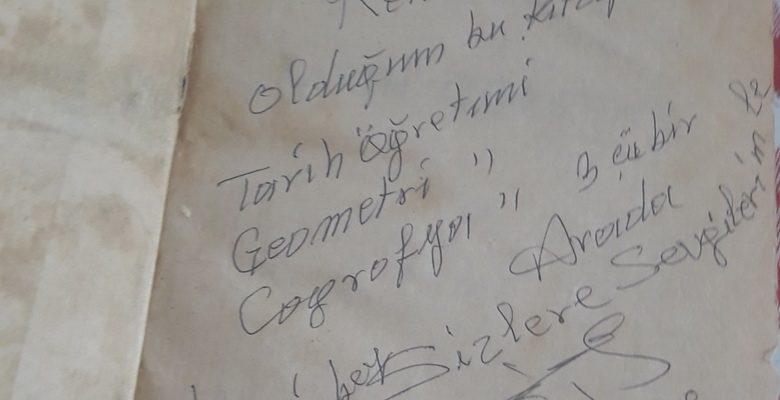 olduğum bu kitap
Tarih Öğretimi
Geometri "
Coğrafya " 3 çü bir
Arada
Sizlere Sevgilerin